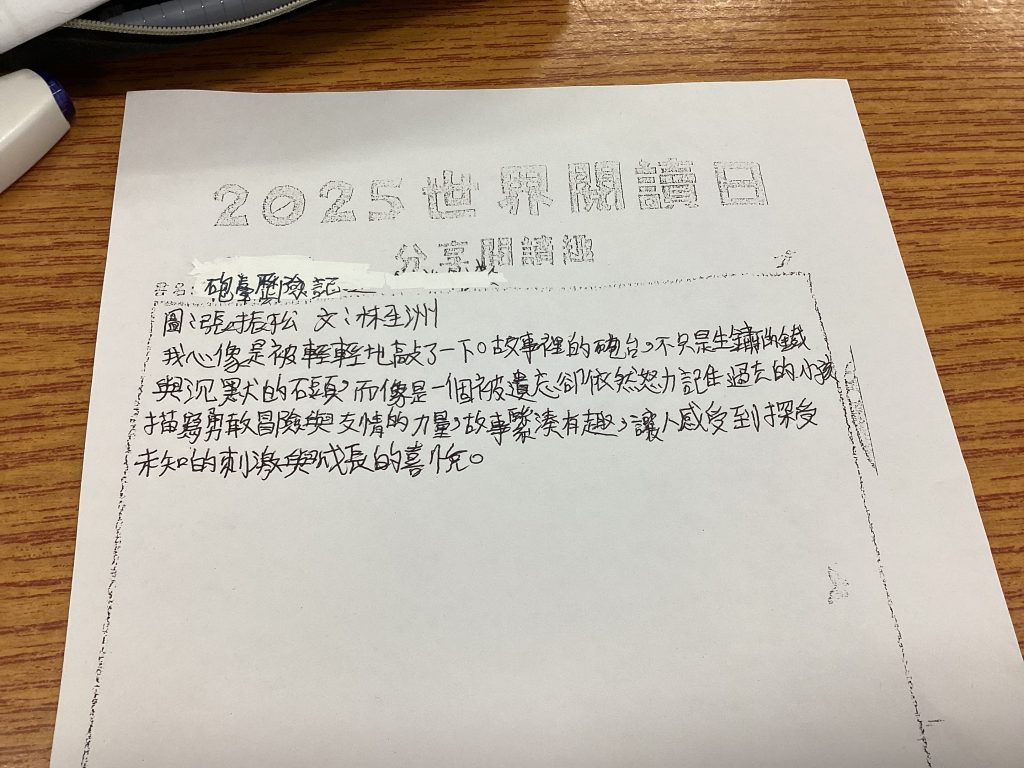 2025世界閱讀日
分享閱讀趣
書名：砲臺歷險記
圖：張振松 文：林玉洲
我心像是被輕輕地敲了一下。故事裡的砲台，不只是生鏽的鐵
與沉默的石頭，而像是一個被遺忘卻依然努力記住過去的小孩
描寫勇敢冒險與友情的力量，故事緊湊有趣，讓人感受到探受
未知的刺激與成長的喜悅。